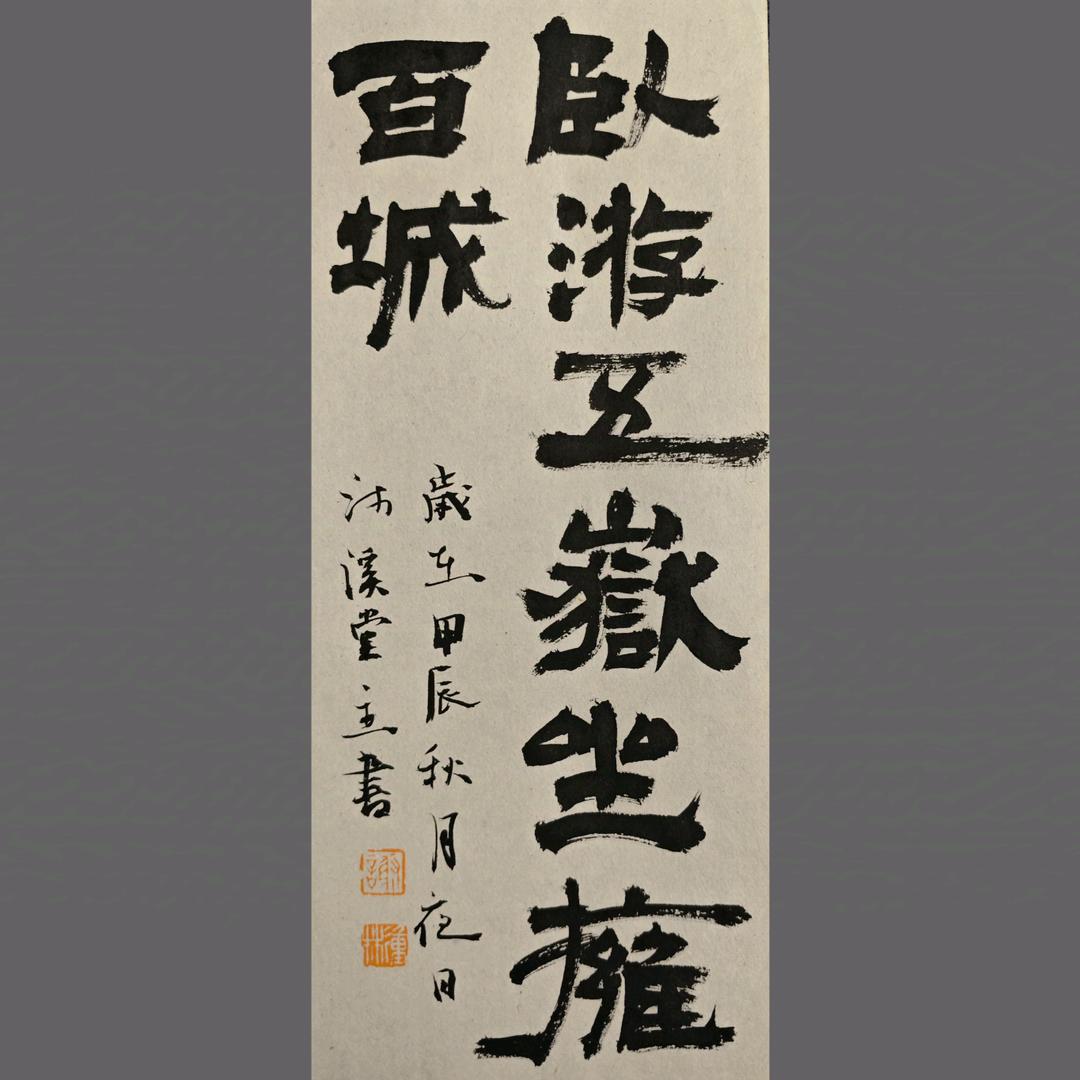 臥游五嶽坐擁
百城
歲在甲辰秋月夜日
沛溪堂主書
謝